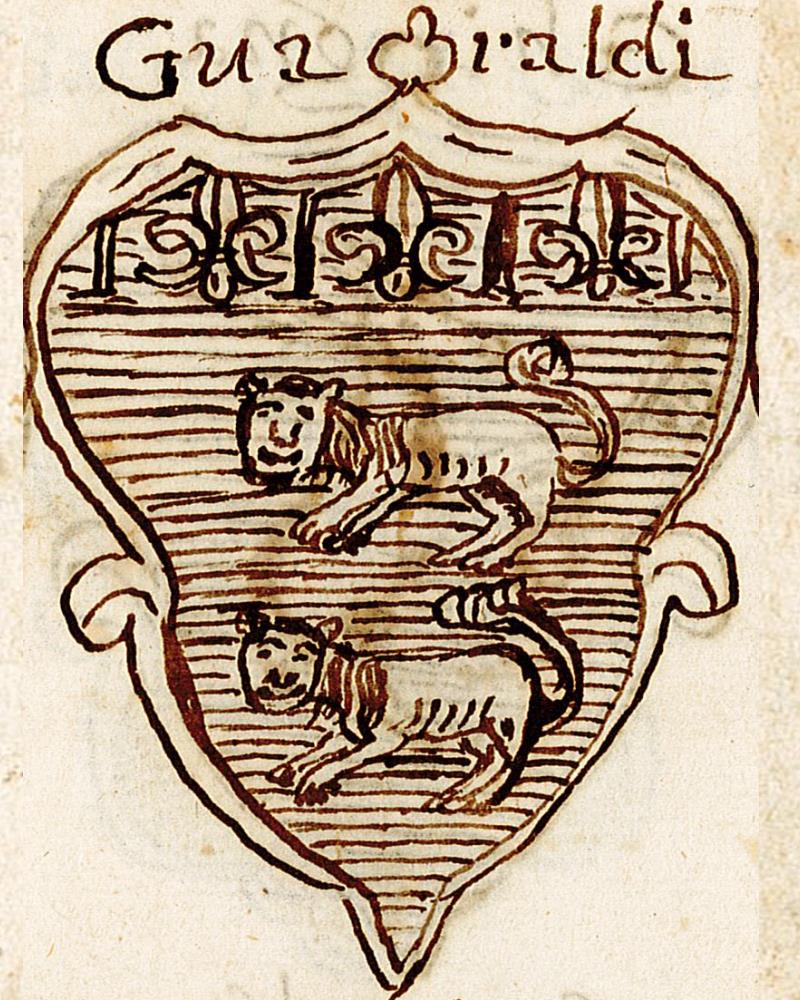 Gua raldi